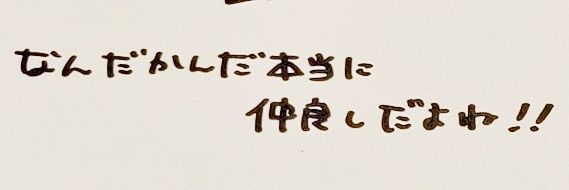 なんだかんだ本当に
仲良しだよね!!